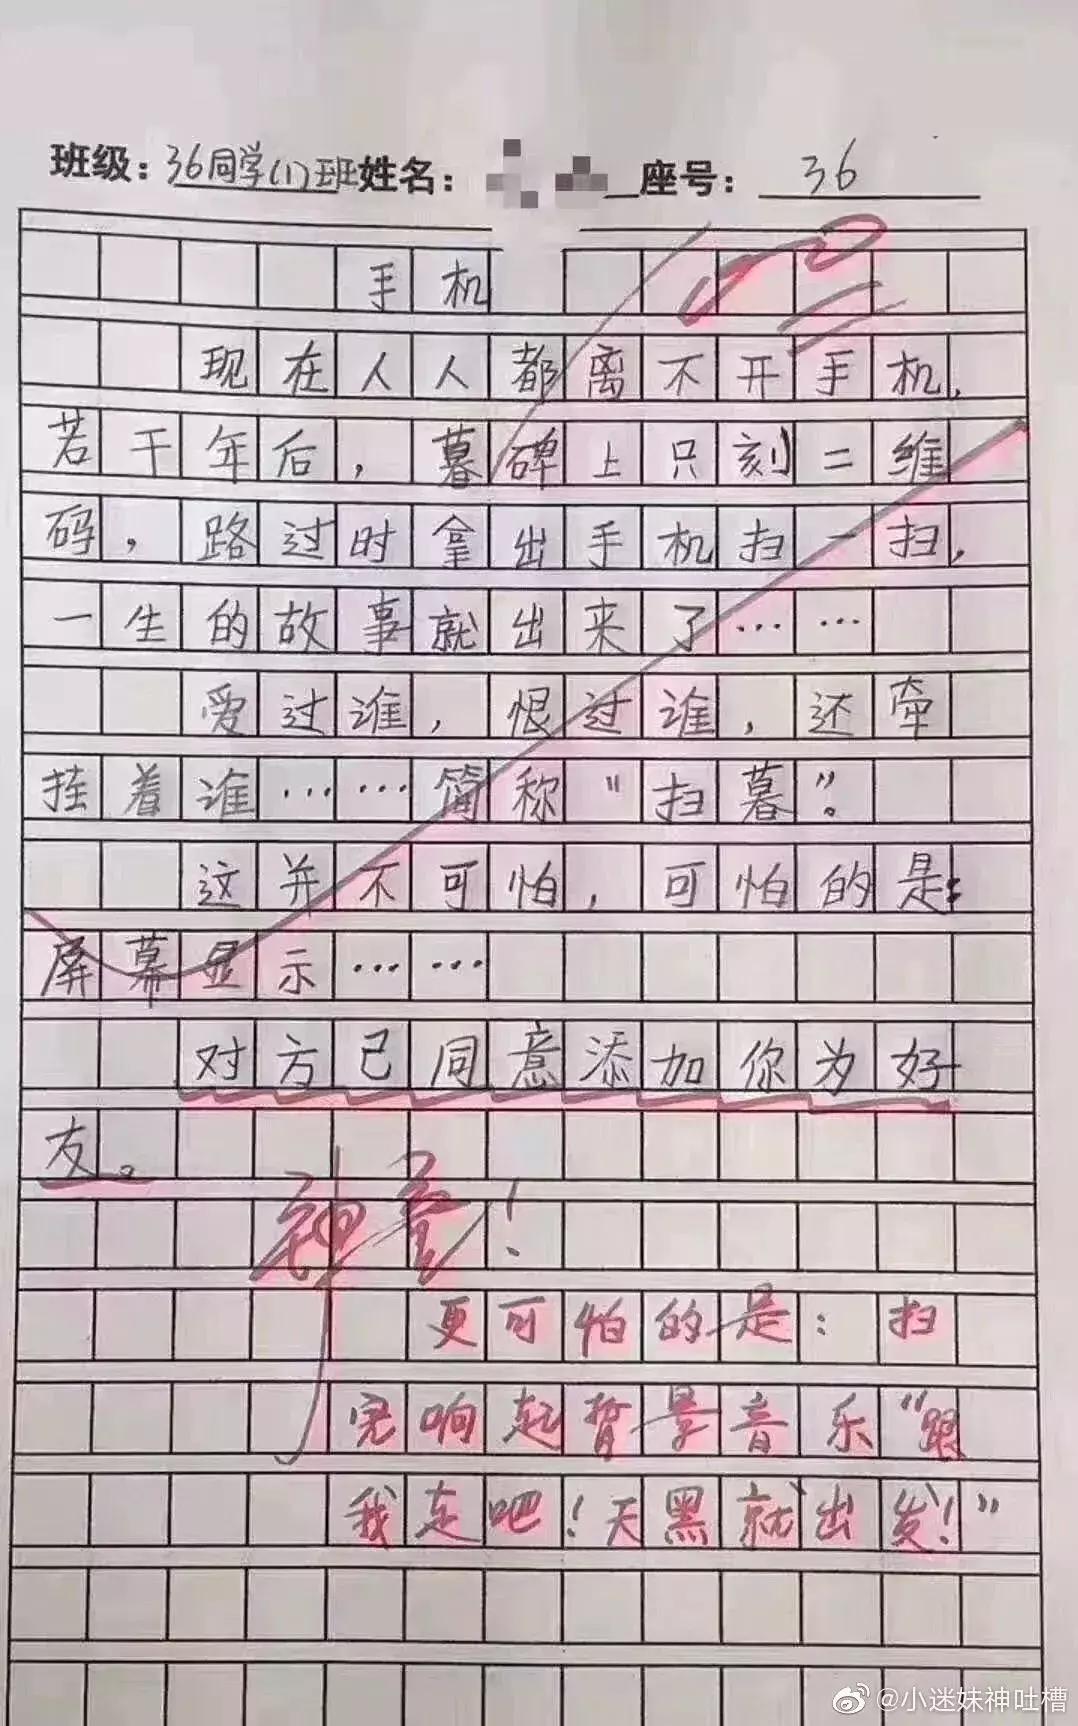 班级：36同学(1)班姓名：座号：36
手机
现在人人都离不开手机，
若干年后，暮碑上只刻二维
码，路过时拿出手机扫一扫，
一生的故事就出来了……
爱过谁，恨过谁，还牵
挂着谁……简称“扫暮”。
这并不可怕，可怕的是：
屏幕显示……
对方已同意添加你为好
友。
神童！
更可怕的是：扫
完响起背景音乐“跟
我走吧！天黑就出发！”
@小迷妹神吐槽